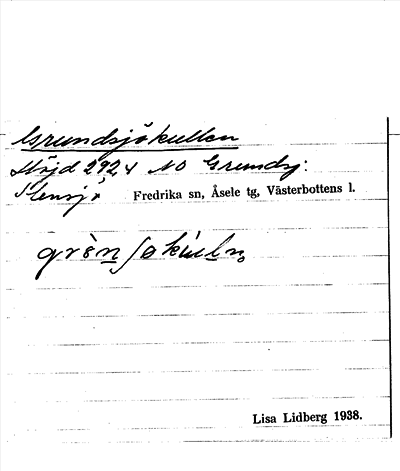 Grundsjökullen
Höjd 292,4 NO Grundsj:
Stensjö Fredrika sn, Åsele tg, Västerbottens l.
Lisa Lidberg 1938.